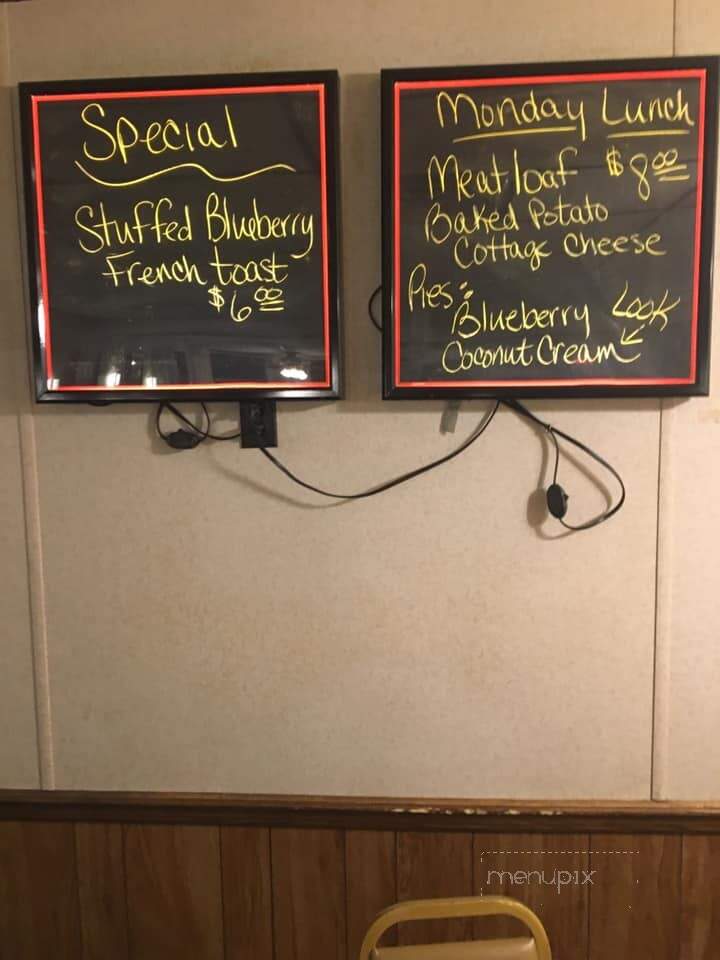 Special
Stuffed Blueberry
French toast
$6.00
Monday Lunch
Meatloaf $8.00
Baked Potato
Cottage Cheese
Pies:
Blueberry LOOK
Coconut Cream
menupix